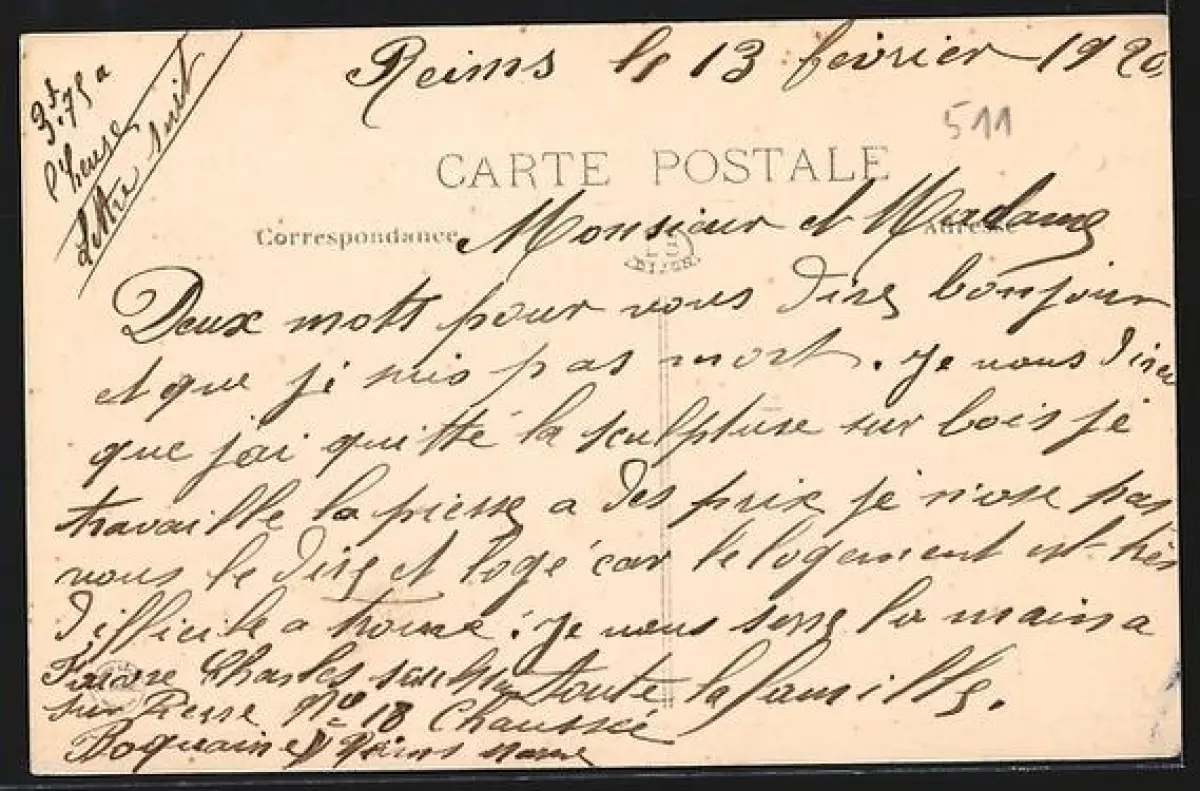 Reims le 13 février 1920
3f.75 a
l'heure
Lettre suit
511
CARTE POSTALE
Correspondance
Adresse
Monsieur et Madame
DIJON
Deux mots pour vous dire bonjour
et que je suis pas mort. Je vous direz
que j'ai quitté la sculpture sur bois je
travaille la pierre a des prix je n'ose pas
vous le dire et logé car le logement est très
difficile a trouvé. Je vous serre la main a
toute la famille.
Charles sculpteur
sur Pierre No 18 Chaussée
Bocquaine Reims Marne